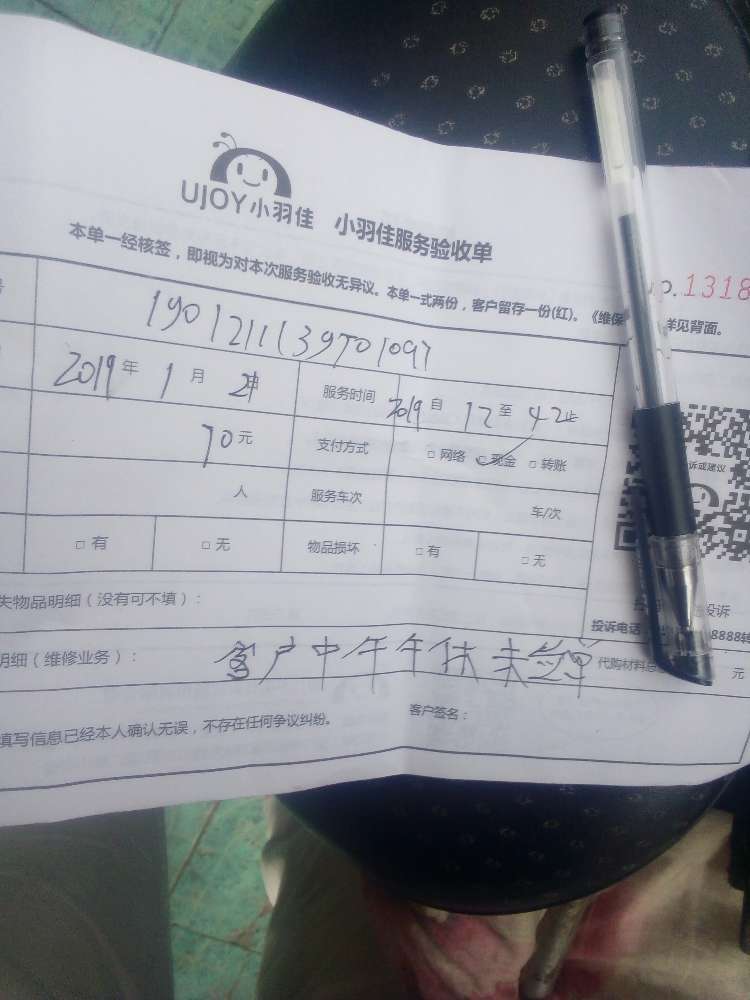 UJOY小羽佳 小羽佳服务验收单
本单一经核签，即视为对本次服务验收无异议。本单一式两份，客户留存一份(红)。《维保 详见背面。
1318
2019年 1月 服务时间 2019自 12至 42止
70元 支付方式 □网络 ☑现金 □转账
人 服务车次 车/次
□有 □无 物品损坏 □有 □无
诉或建议
失物品明细（没有可不填）： 投诉
投诉电话 8888转
明细（维修业务）： 客户中午午休未签单 代购材料 元
填写信息已经本人确认无误，不存在任何争议纠纷。 客户签名：